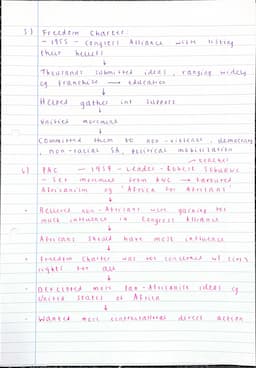 5) Freedom Charter:
- 1955 - Congress Alliance with listing
their beliefs
↓
Thousands submitted ideas, ranging widely
eg franchise → education
↓
Helped gather int support
↓
Unified movement
↓
Committed them to non-violence, democracy
, non-racial SA, political mobilisation
6) PAC - 1959 - Leader - Robert Sobukwe
- Set movement from ANC → favoured
Africanism eg 'Africa for Africans'
↓
- Believed non-Africans were gaining too
much influence in Congress Alliance
↓
- Africans should have most influence
↓
- Freedom Charter was not concerned w/
rights for all
↓
- Preferred more Pan-Africanist ideas eg
United States of Africa
↓
- Wanted more confrontational direct action